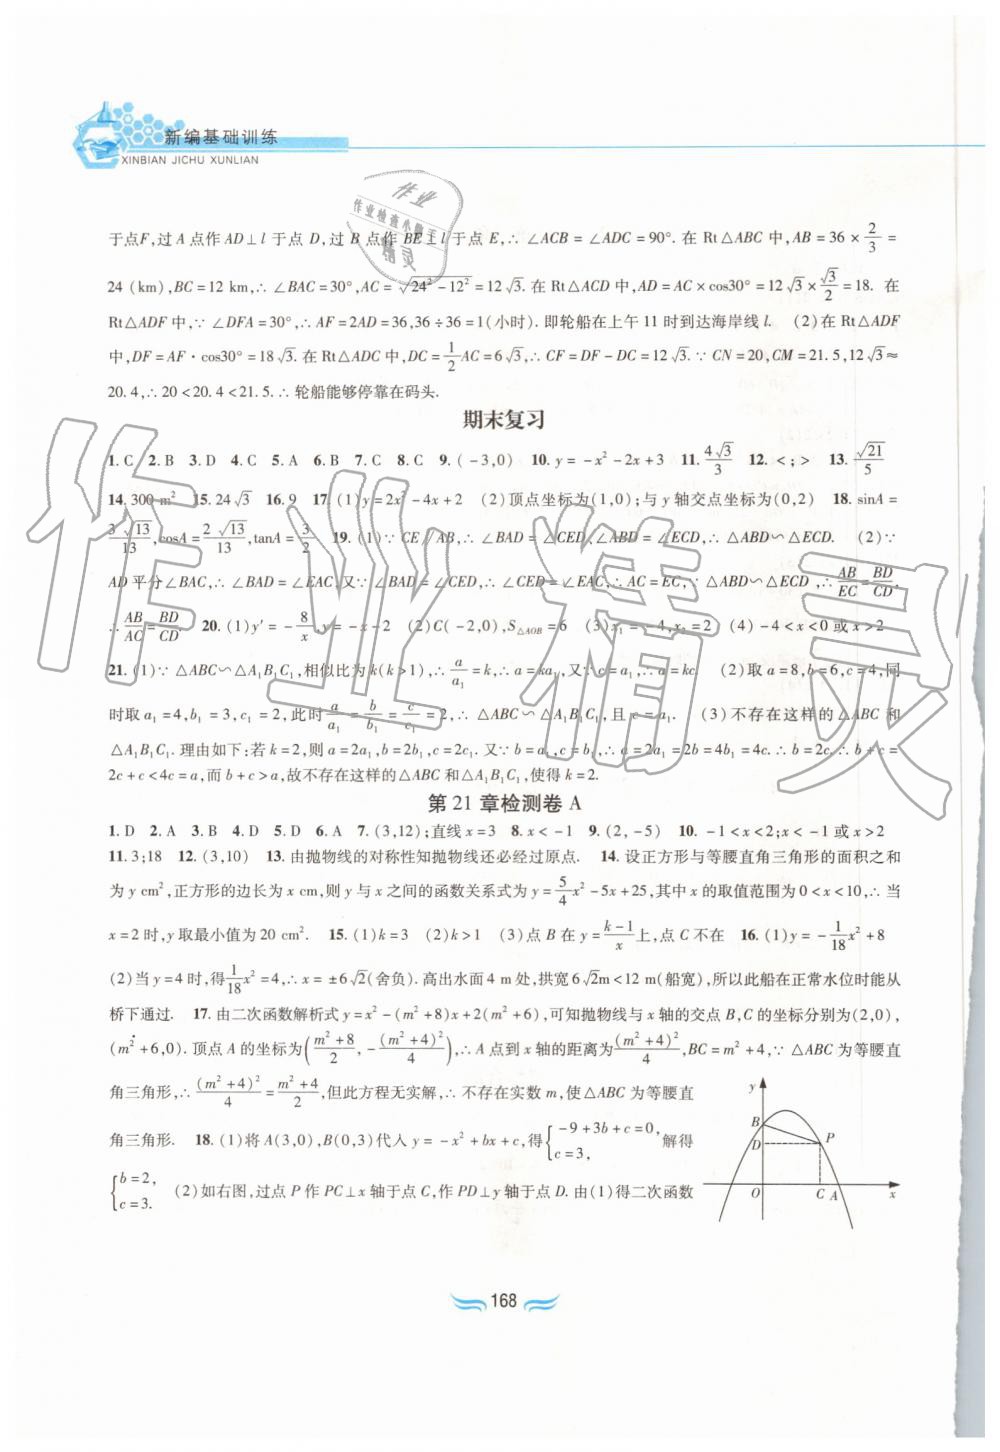 新编基础训练
XINBIAN JICHU XUNLIAN
于点F,过A点作AD⊥l于点D,过B点作BE⊥l于点E,∴∠ACB=∠ADC=90°.在Rt△ABC中,AB=36×2/3=
24(km),BC=12 km,∴∠BAC=30°,AC=√(24²-12²)=12√3.在Rt△ACD中,AD=AC×cos30°=12√3×√3/2=18. 在
Rt△ADF中,∵∠DFA=30°,∴AF=2AD=36,36÷36=1(小时). 即轮船在上午11时到达海岸线l. (2)在Rt△ADF
中,DF=AF·cos30°=18√3.在Rt△ADC中,DC=1/2AC=6√3,∴CF=DF-DC=12√3.∵CN=20,CM=21.5,12√3≈
20.4,∴20<20.4<21.5.∴轮船能够停靠在码头.
期末复习
1. C 2. B 3. D 4. C 5. A 6. B 7. C 8. C 9. (-3,0) 10. y=-x²-2x+3 11. 4√3/3 12. <;> 13. √21/5
14. 300 m² 15. 24√3 16. 9 17. (1)y=2x²-4x+2 (2)顶点坐标为(1,0);与y轴交点坐标为(0,2) 18. sinA=
3√13/13,cosA=2√13/13,tanA=3/2 19. (1)∵CE∥AB,∴∠BAD=∠CED,∠ABD=∠ECD,∴△ABD∽△ECD. (2)∵
AD平分∠BAC,∴∠BAD=∠EAC.又∵∠BAD=∠CED,∴∠CED=∠EAC,∴AC=EC,∵△ABD∽△ECD,∴AB/EC=BD/CD,
∴AB/AC=BD/CD. 20. (1)y′=-8/x,y=-x-2 (2)C(-2,0),S△AOB=6 (3)x₁=-4,x₂=2 (4)-4<x<0或x>2
21. (1)∵△ABC∽△A₁B₁C₁,相似比为k(k>1),∴a/a₁=k,∴a=ka₁,又∵c=a₁,∴a=kc (2)取a=8,b=6,c=4,同
时取a₁=4,b₁=3,c₁=2,此时a/a₁=b/b₁=c/c₁=2,∴△ABC∽△A₁B₁C₁,且c=a₁. (3)不存在这样的△ABC和
△A₁B₁C₁. 理由如下:若k=2,则a=2a₁,b=2b₁,c=2c₁. 又∵b=a₁,c=b₁,∴a=2a₁=2b=4b₁=4c.∴b=2c.∴b+c=
2c+c<4c=a,而b+c>a,故不存在这样的△ABC和△A₁B₁C₁,使得k=2.
第21章检测卷A
1. D 2. A 3. B 4. D 5. D 6. A 7. (3,12);直线x=3 8. x<-1 9. (2,-5) 10. -1<x<2;x<-1或x>2
11. 3;18 12. (3,10) 13. 由抛物线的对称性知抛物线还必经过原点. 14. 设正方形与等腰直角三角形的面积之和
为y cm²,正方形的边长为x cm,则y与x之间的函数关系式为y=5/4x²-5x+25,其中x的取值范围为0<x<10,∴当
x=2时,y取最小值为20 cm². 15. (1)k=3 (2)k>1 (3)点B在y=(k-1)/x上,点C不在 16. (1)y=-1/18x²+8
(2)当y=4时,得1/18x²=4,∴x=±6√2(舍负). 高出水面4 m处,拱宽6√2m<12 m(船宽),所以此船在正常水位时能从
桥下通过. 17. 由二次函数解析式y=x²-(m²+8)x+2(m²+6),可知抛物线与x轴的交点B,C的坐标分别为(2,0),
(m²+6,0). 顶点A的坐标为((m²+8)/2,-(m²+4)²/4),∴A点到x轴的距离为(m²+4)²/4,BC=m²+4,∵△ABC为等腰直
角三角形,∴(m²+4)²/4=(m²+4)/2,但此方程无实解,∴不存在实数m,使△ABC为等腰直
角三角形. 18. (1)将A(3,0),B(0,3)代人y=-x²+bx+c,得{-9+3b+c=0, c=3, 解得
{b=2, c=3. (2)如右图,过点P作PC⊥x轴于点C,作PD⊥y轴于点D.由(1)得二次函数
y
B
D
P
O
C
A
x
168
作业
作业检查小助手
精灵
作业精灵